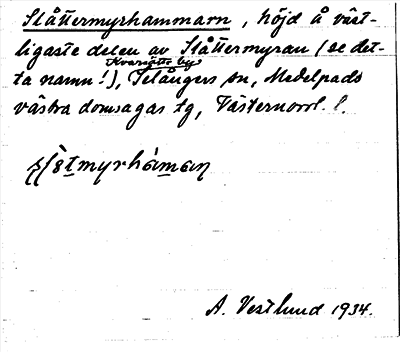 Slåttermyrhammarn, höjd å väst-
ligaste delen av Slåttermyran (se det-
Kvarsätts by
ta namn!), Selångers sn, Medelpads
västra domsagas tg, Västernorrl. l.
A. Vestlund 1934.